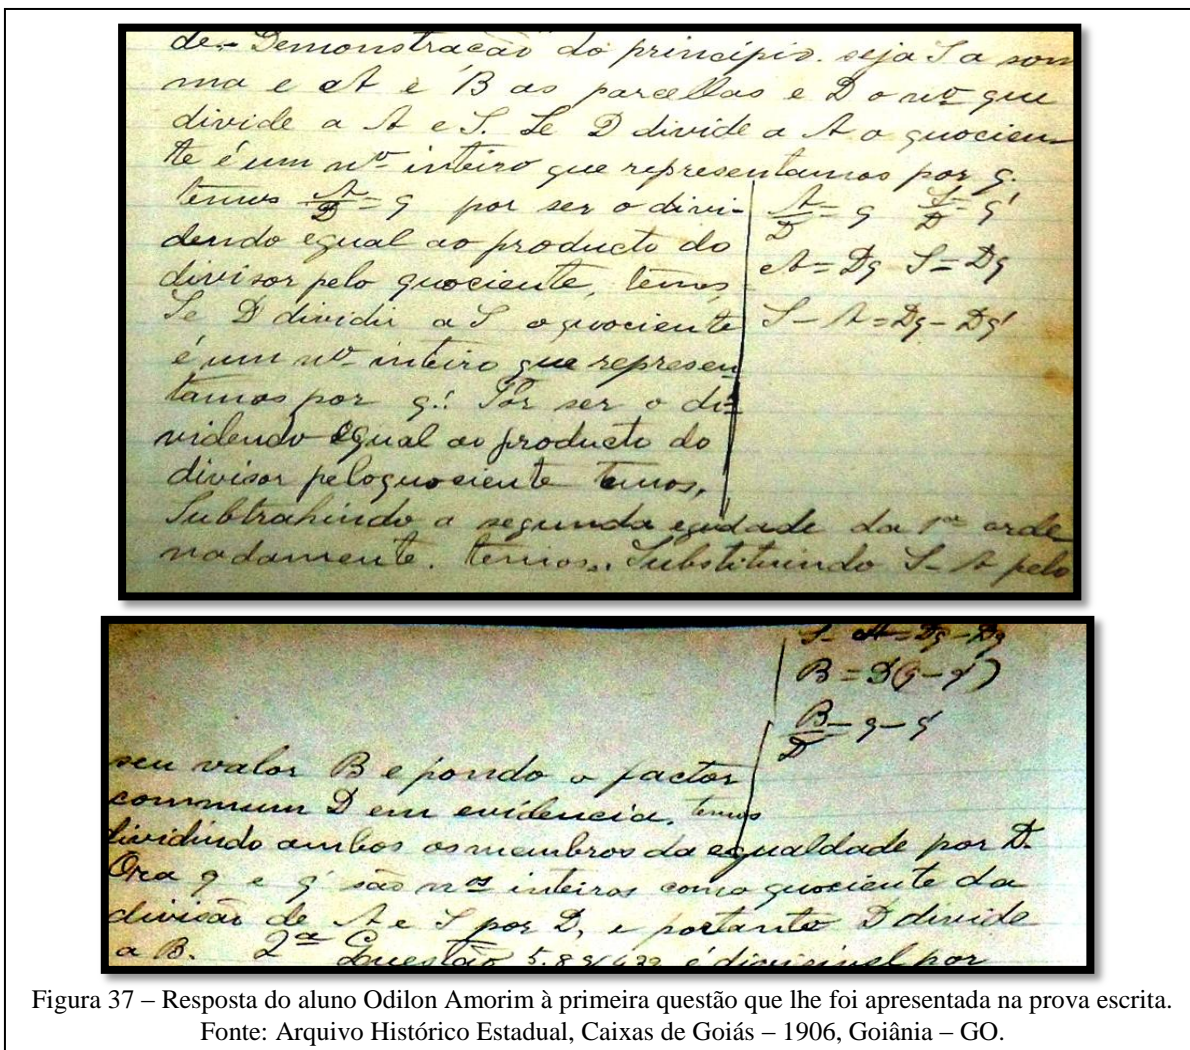 de - Demonstracão do princípio. seja S a som
ma e A e B as parcellas e D o nº que
divide a A e S. Se D divide a A o quocien-
te é um nº inteiro que representamos por q.
temos A/D = q por ser o divi- A/D = q S/D = q'
dendo egual ao producto do
divisor pelo quociente, temos, A = Dq S = Dq
Se D dividir a S o quociente S - A = Dq - Dq'
é um nº inteiro que represen
tamos por q'. Por ser o di-
videndo egual ao producto do
divisor pelo quociente temos,
Subtrahindo a segunda da 1ª orde
nadamente. temos.. Substituindo S - A pelo
S - A = Dq - Dq
B = D(q - q')
B/D = q - q'
seu valor B e pondo o factor
commum D em evidencia, temos
dividindo ambos os membros da egualdade por D.
Ora q e q' são nºs inteiros como quociente da
divisão de A e S por D, e portanto D divide
a B. 2ª Questão é divisivel por
Figura 37 – Resposta do aluno Odilon Amorim à primeira questão que lhe foi apresentada na prova escrita.
Fonte: Arquivo Histórico Estadual, Caixas de Goiás – 1906, Goiânia – GO.